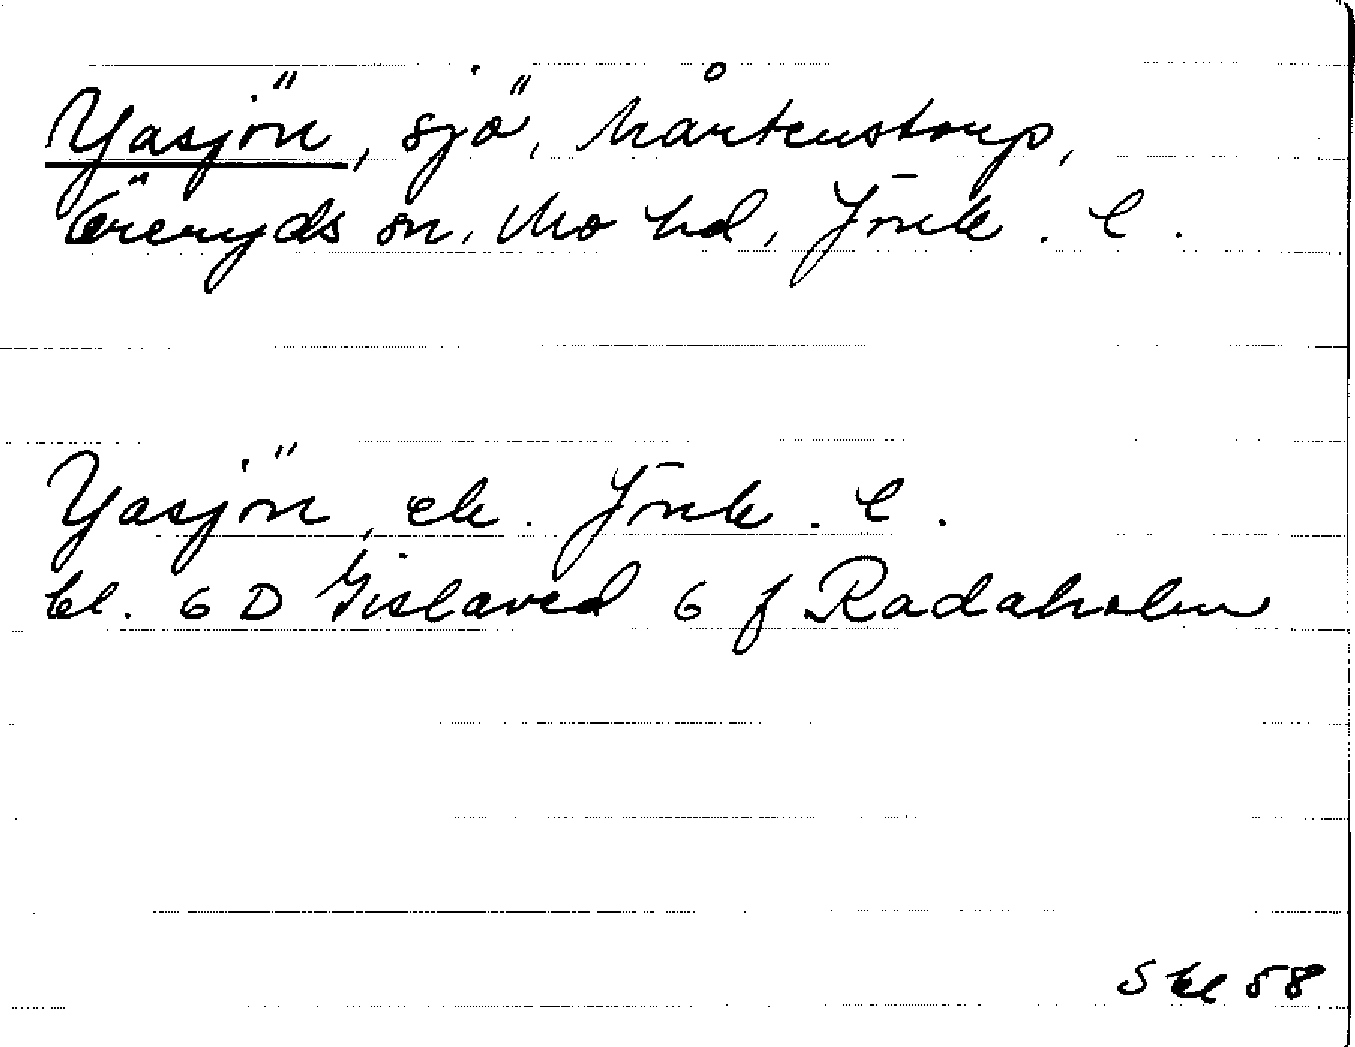 Yasjön, sjö, Mårtenstorp,
Öreryds sn, Mo hd, Jönk. l.
Yasjön, ek. Jönk. l.
bl. 6 D Gislaved 6 f Radaholm
S bl 58